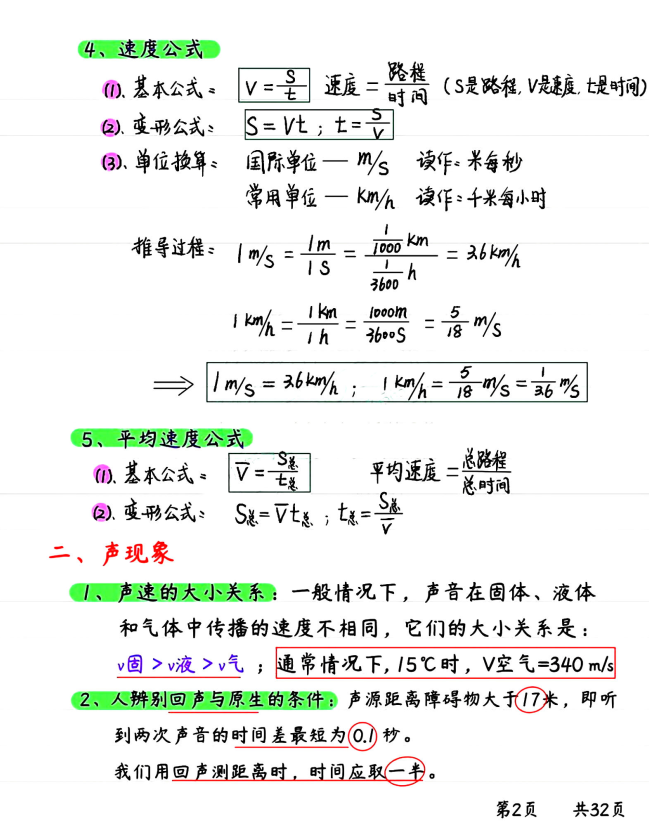 4、速度公式
(1)、基本公式： V = S/t 速度 = 路程/时间 (S是路程, V是速度, t是时间)
(2)、变形公式： S = Vt ; t = S/V
(3)、单位换算： 国际单位 — m/s 读作：米每秒
常用单位 — km/h 读作：千米每小时
推导过程： 1 m/s = 1m/1S = (1/1000 km)/(1/3600 h) = 3.6 km/h
1 km/h = 1km/1h = 1000m/3600S = 5/18 m/s
⟹ 1 m/s = 3.6 km/h ; 1 km/h = 5/18 m/s = 1/3.6 m/s
5、平均速度公式
(1)、基本公式： V̅ = S总/t总 平均速度 = 总路程/总时间
(2)、变形公式： S总 = V̅ t总 ; t总 = S总/V̅
二、声现象
1、声速的大小关系：一般情况下，声音在固体、液体
和气体中传播的速度不相同，它们的大小关系是：
v固 > v液 > v气 ；通常情况下, 15℃时, V空气=340 m/s
2、人辨别回声与原生的条件：声源距离障碍物大于17米，即听
到两次声音的时间差最短为0.1秒。
我们用回声测距离时，时间应取一半。
第2页 共32页